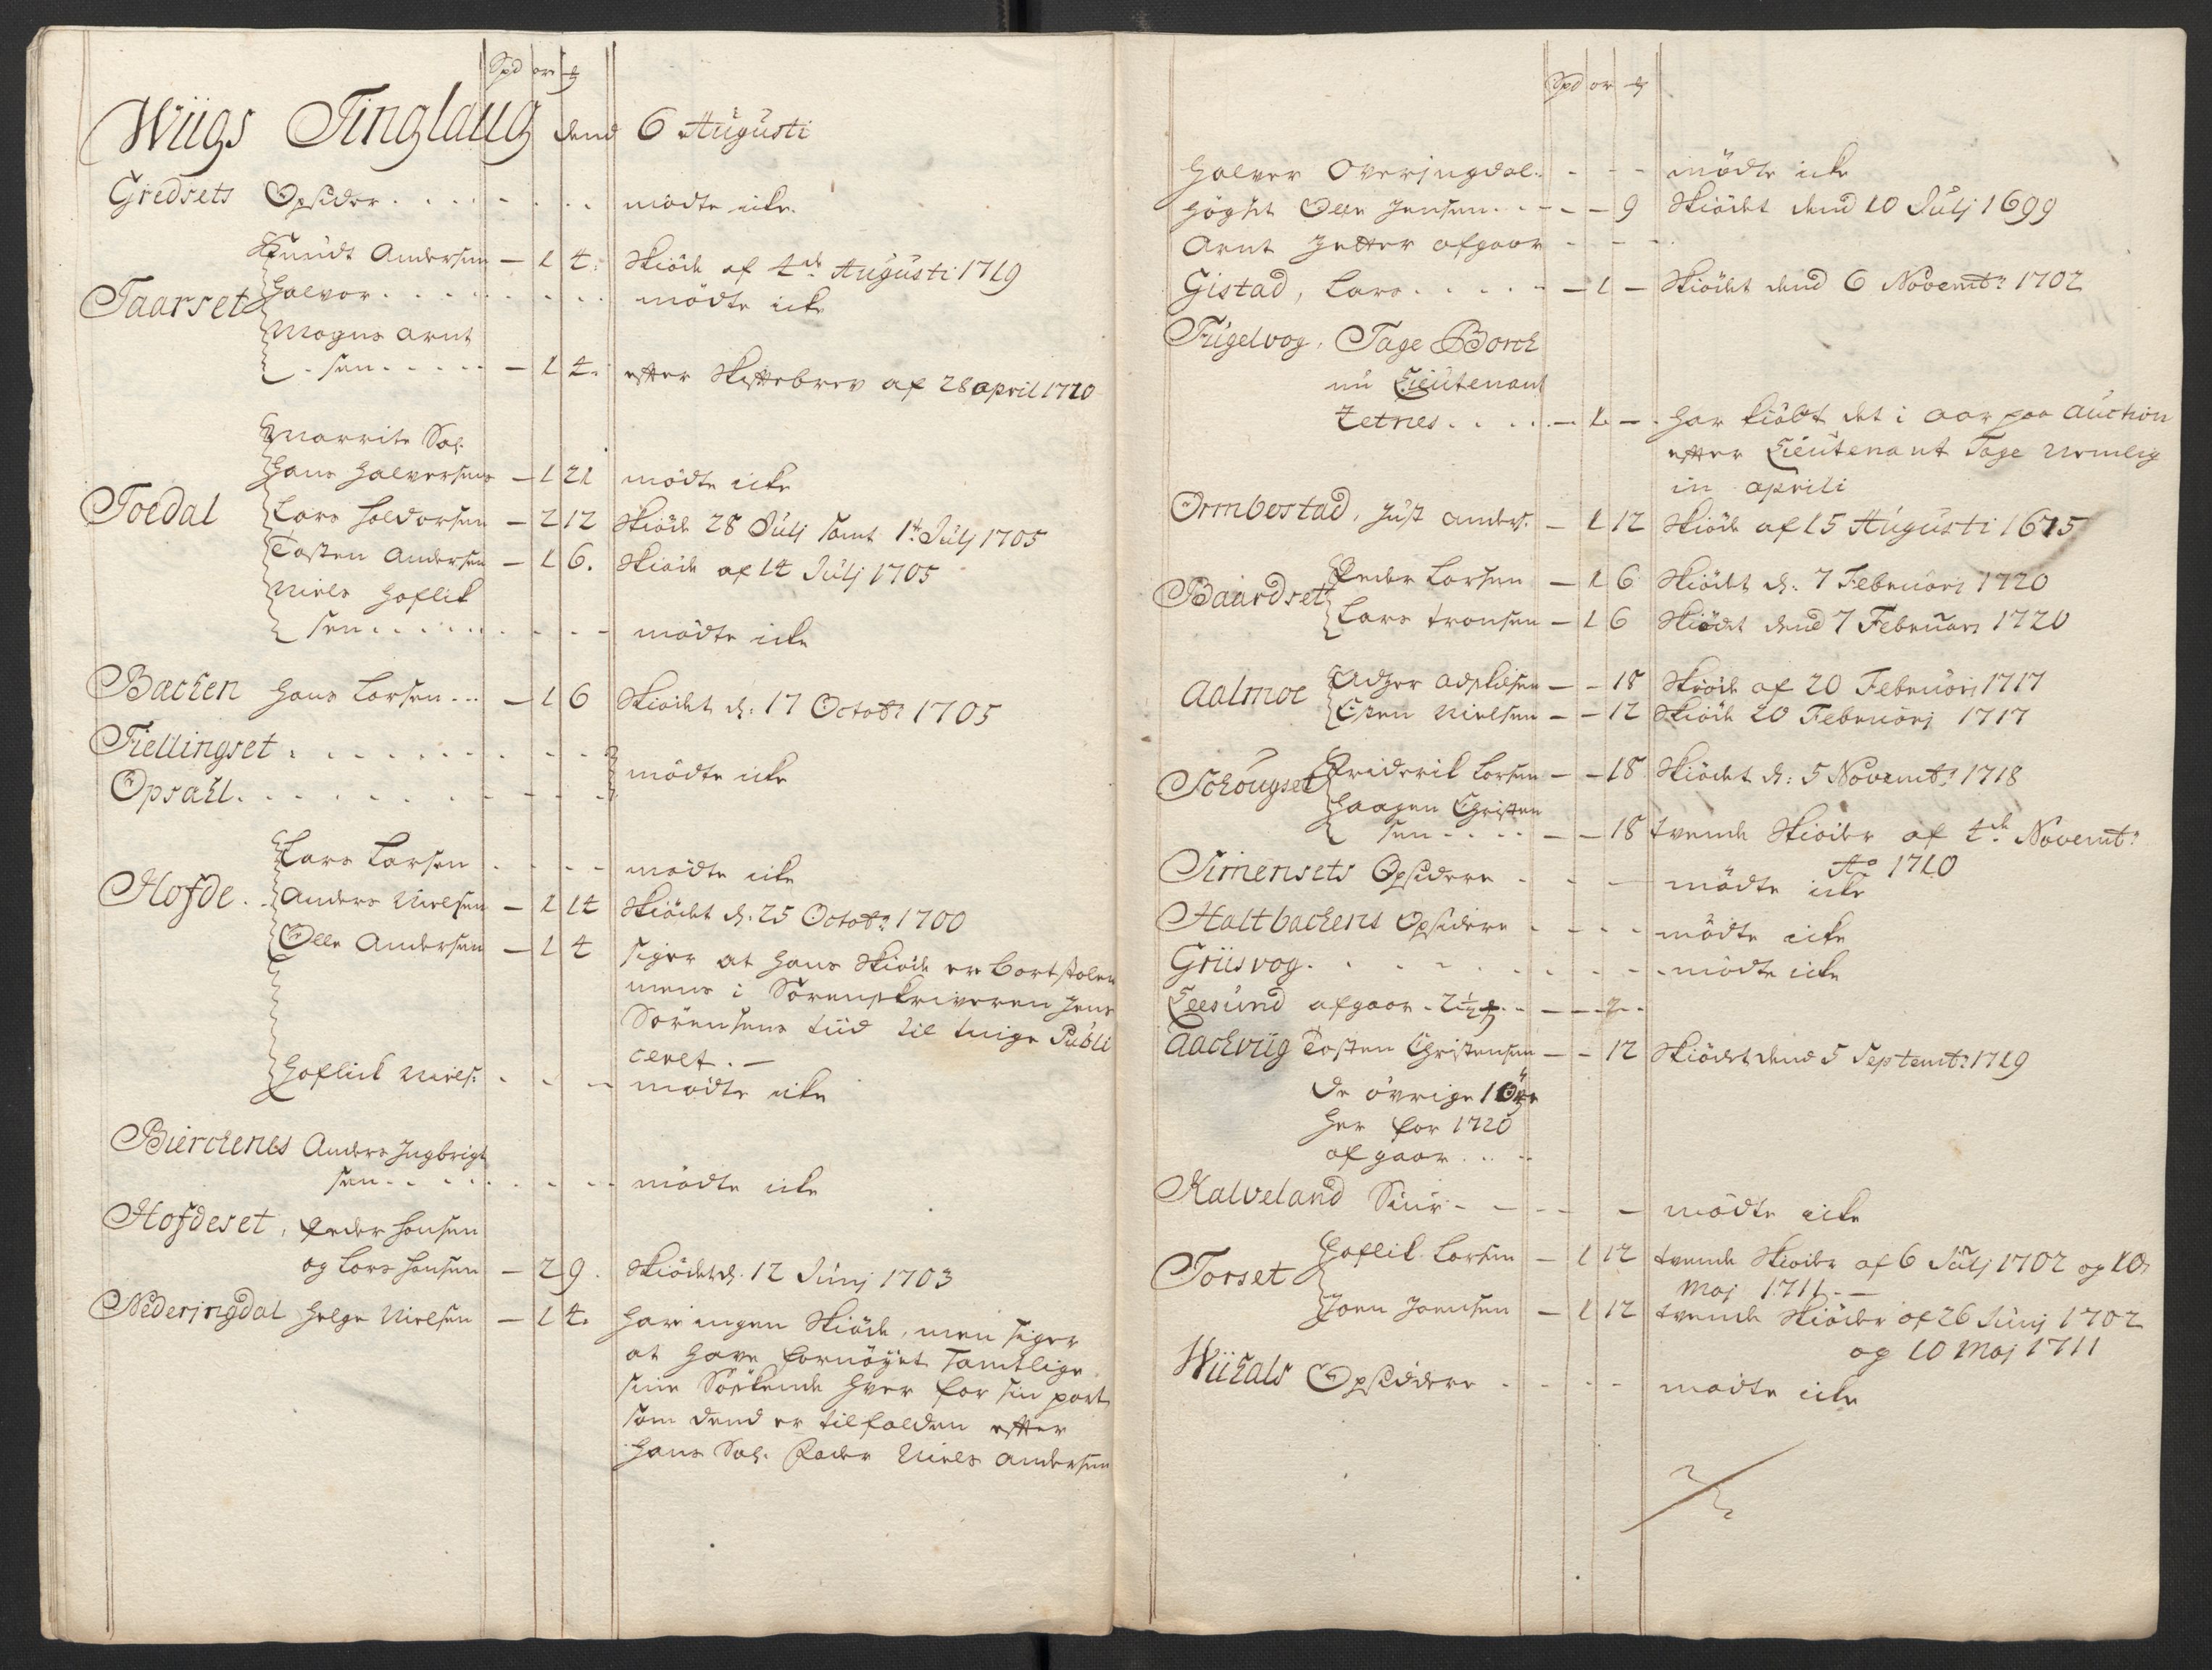 Spd or ₰
Wiigs Tinglaug dend 6 Augusti
Gredsets Opsider . . . . . mødte icke.
Knudt Andersen — 1 4. Skiøde af 4de Augusti 1719
Taarset Halvor . . . . . mødte icke
Mogns Arnt
sen . . . . . — 1 4. efter Skiftebrev af 28 april 1720
Marrite Sal.
Hans Halversens — 1 21 mødte icke
Toedal Lars Haldorsen — 2 12 Skiøde 28 Julj samt 1t Julj 1705
Tosten Andersen — 1 6. Skiøde af 14 Julj 1705
Niels Hoflik
sen . . . . . mødte icke
Bachen Hans Larsen . . . — 1 6 Skiødet d: 17 Octobr 1705
Fiellingset . . . . .
mødte icke
Opsahl . . . . .
Lars Larsen . . . . mødte icke
Hofde . . Anders Nielsen — 1 14 Skiødet d. 25 Octobr 1700
Olle Andersen — 1 4 siger at hans Skiøde er bortstolen
mens i Sorenskriveren Jens
Sørensens tiid til tinge Publi
ceret . —
Hoflik Niels: . . . mødte icke
Bierchenes Anders Jngbrigt
sen . . . . . mødte icke
Hofdeset, Peder Hansen
og Lars Hansen — 2 9. Skiødet d. 12 Junj 1703
Nederjngdal Helge Nielsen — 1 4. Har ingen Skiøde, men siger
at have fornøyet samtlige
sine Søskende hver for sin part
som dend er tilfalden efter
hans Sal. Fader Niels Andersen
Spd or ₰
Halvor Overjngdal . . . mødte icke
Høgset Olle Jensen . . — — 9 Skiødet dend 10 Julj 1699
Arnt Jetter afgaar . . .
Gistad, Lars . . . . . — 1 — Skiødet dend 6 Novembr 1702
Fugelvog, Tage Borch
nu Lieutenant
Tetnes . . . . — 1. — . Har kiøbt det i aar paa Auction
efter Lieutenant Tage nemlig
in aprili
Ormbostad, Just Anders: — 1 12 Skiøde af 15 Augusti 1675
Peder Larsen — 1 6 Skiødet d: 7 Februari 1720
Baardset
Lars Tronsen — 1 6 Skiødet dend 7 Februari 1720
Aalmoe — — 18 Skiøde af 20 Februarj 1717
Esten Nielsen — — 12 Skiøde 20 Februarj 1717
Schougset Friderik Larsen — — 18 Skiødet d: 5 Novembr 1718
Haagen Christen
sen . . . . — — 18 tvende Skiøder af 4de Novembr
Ao 1710
Simensets Opsidere . . — mødte icke
Haltbachens Opsidere . . . . mødte icke
Griisvog . . . . . mødte icke
Leesund afgaar . 2½ ₰ . . — — —
Aachviig Tosten Christensen — — 12 Skiødet dend 5 Septembr 1719
De øvrige 1 Øre
her for 1720
afgaar . . .
Kalveland Siur . . . — mødte icke
Hoflik Larsen — 1 12 tvende Skiøder af 6 Julj 1702 og 10
Torset Maj 1711 . —
Joen Joensen — 1 12 tvende Skiøder af 26 Junj 1702
og 10 Maj 1711
Wiikals Opsiddere . . . . mødte icke